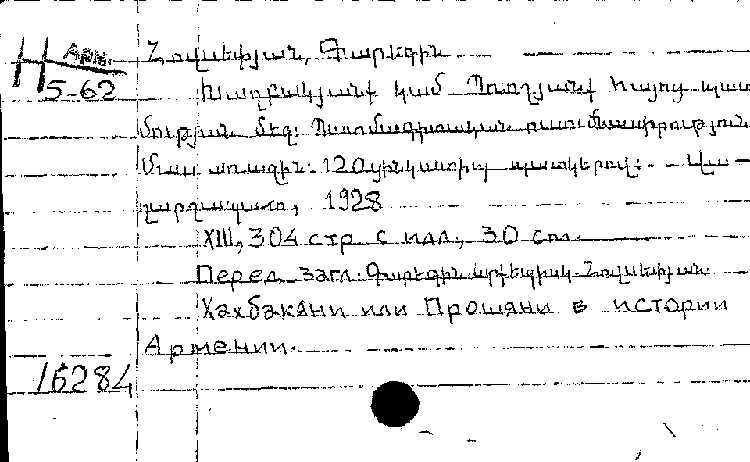 Н АРМ.
5-62
Հովսեփյան, Գարեգին
Խաղբակյանք կամ Պռոշյանք հայոց պատ
մության մեջ: Պատմագիտական ուսումնասիրություն
Մաս առաջին: 120 ցինկատիպ պատկերով: - Վա-
ղարշապատ, 1928
XIII, 304 стр. с илл., 30 см.
Перед загл. Գարեգին արքեպիսկ. Հովսեփյան.
Хахбакяни или Прошяни в истории
Армении.
16284